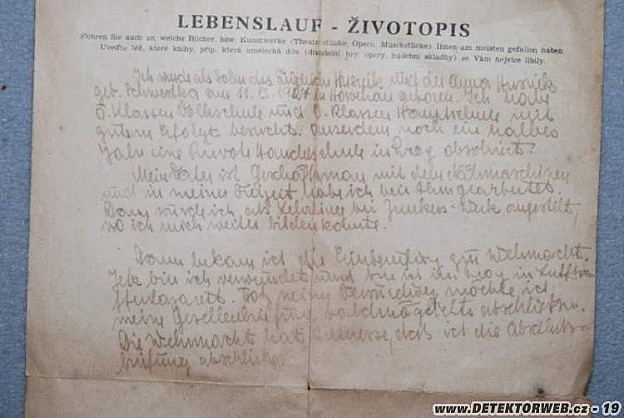 LEBENSLAUF - ŽIVOTOPIS
Führen Sie auch an, welche Bücher, bzw. Kunstwerke (Theaterstücke, Opern, Musikstücke) Ihnen am meisten gefallen haben
Uveďte též, které knihy, příp. která umělecká díla (divadelní hry, opery, hudební skladby) se Vám nejvíce líbily.
Ich wurde als Sohn des und der Anna
geb. am 11. 5. 1927 in geboren. Ich habe
5 Klassen Volkschule und Klassen Hauptschule mit
gutem Erfolge besucht. Außerdem noch ein halbes
Jahr eine Private Handelschule in Prag absolviert.
Mein Vater ist Geschäftsmann mit den Nähmaschinen
und in meiner Freizeit habe ich bei ihm gearbeitet.
Dann wurde ich als Lehrling bei Junkers-Werk angestellt,
wo ich mich weiter bilden konnte.
Dann bekam ich die Einberufung zur Wehrmacht.
bin ich verwundet und in Prag in Luftwaffen
meiner möchte ich
meine abschließen.
Die Wehrmacht hat Interesse, daß ich die Abschluss-
prüfung
www.DETEKTORWEB.cz - 19